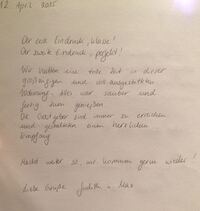 12. April 2025
Der erste Eindruck „klasse"!
Der zweite Eindruck „perfekt"!
Wir hatten eine tolle Zeit in dieser
großzügigen und gut ausgestatteten
Wohnung. Alles war sauber und
fertig zum genießen.
Die Gastgeber sind immer zu erreichen
und gestalteten einen herzlichen
Empfang.
Macht weiter so, wir kommen gerne wieder!
Liebe Grüße Judith u. Max